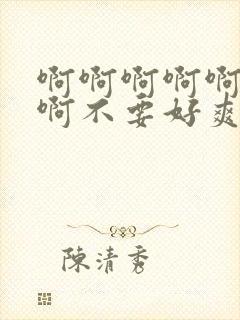 啊啊啊啊啊
啊不要好爽
陈清秀